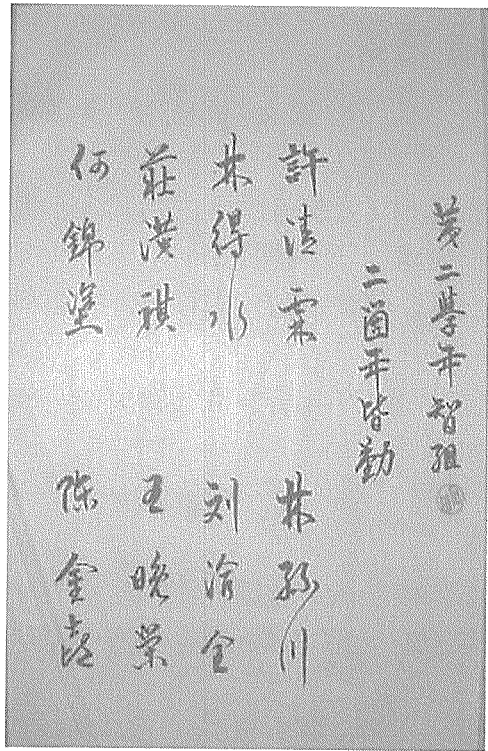 第二學年智組
二箇年皆勤
許清霖 林川
林得水 刘全
莊漢祺 王晚榮
何錦塗 陳金